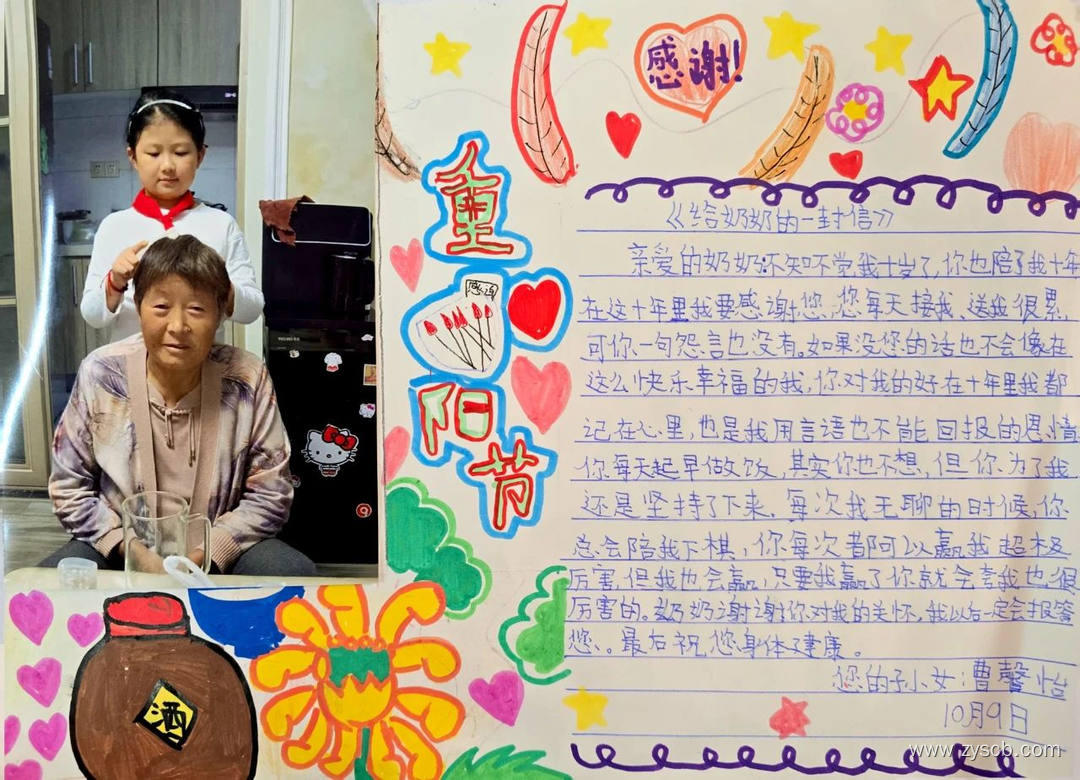 感谢!
重
感谢
阳
节
《给奶奶的一封信》
亲爱的奶奶:不知不觉我十岁了,你也陪了我十年
在这十年里我要感谢您,您每天接我、送我很累,
可你一句怨言也没有。如果没您的话也不会像在
这么快乐幸福的我,你对我的好在十年里我都
记在心里,也是我用言语也不能回报的恩情
你每天起早做饭,其实你也不想,但你为了我
还是坚持了下来,每次我无聊的时候,你
总会陪我下棋,你每次都可以赢我超极
厉害,但我也会赢,只要我赢了你就会夸我也很
厉害的。奶奶谢谢你对我的关怀,我以后一定会报答
您。最后祝您身体健康。
您的孙女:曹馨怡
10月9日
酒
www.zyscb.com